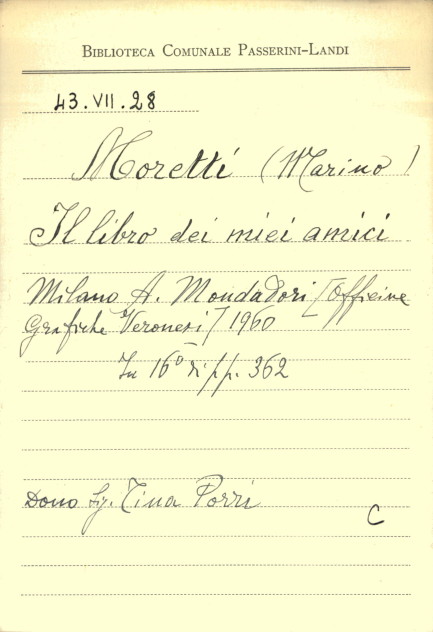 BIBLIOTECA COMUNALE PASSERINI-LANDI
43.VII.28
Moretti (Marino)
Il libro dei miei amici
Milano A. Mondadori [Officine
Grafiche Veronesi] 1960
In 16° di pp. 362
Dono Sig. Tina Porri
C